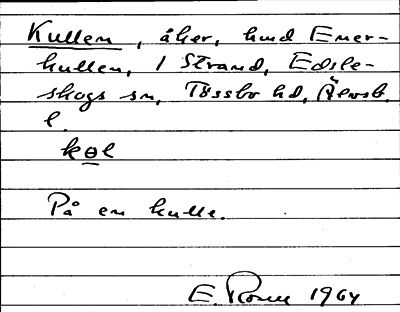 Kullen, åker, hmd Ener-
kullen, 1 Strand, Edsle-
skogs sn, Tössbo hd, Älvsb.
l.
kɵl
På en kulle.
E. 1964